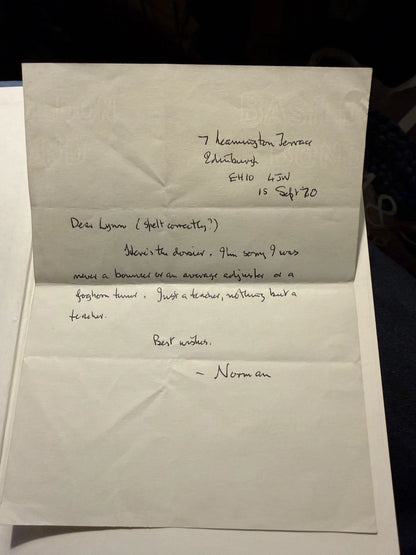 7 Leamington Terrace
Edinburgh
EH10 4JW
15 Sept 20
Dear Lynn (spelt correctly?)
Here's the dossier. I'm sorry I was
never a bouncer or an average adjuster or a
foghorn tuner. Just a teacher, nothing but a
teacher.
Best wishes,
– Norman